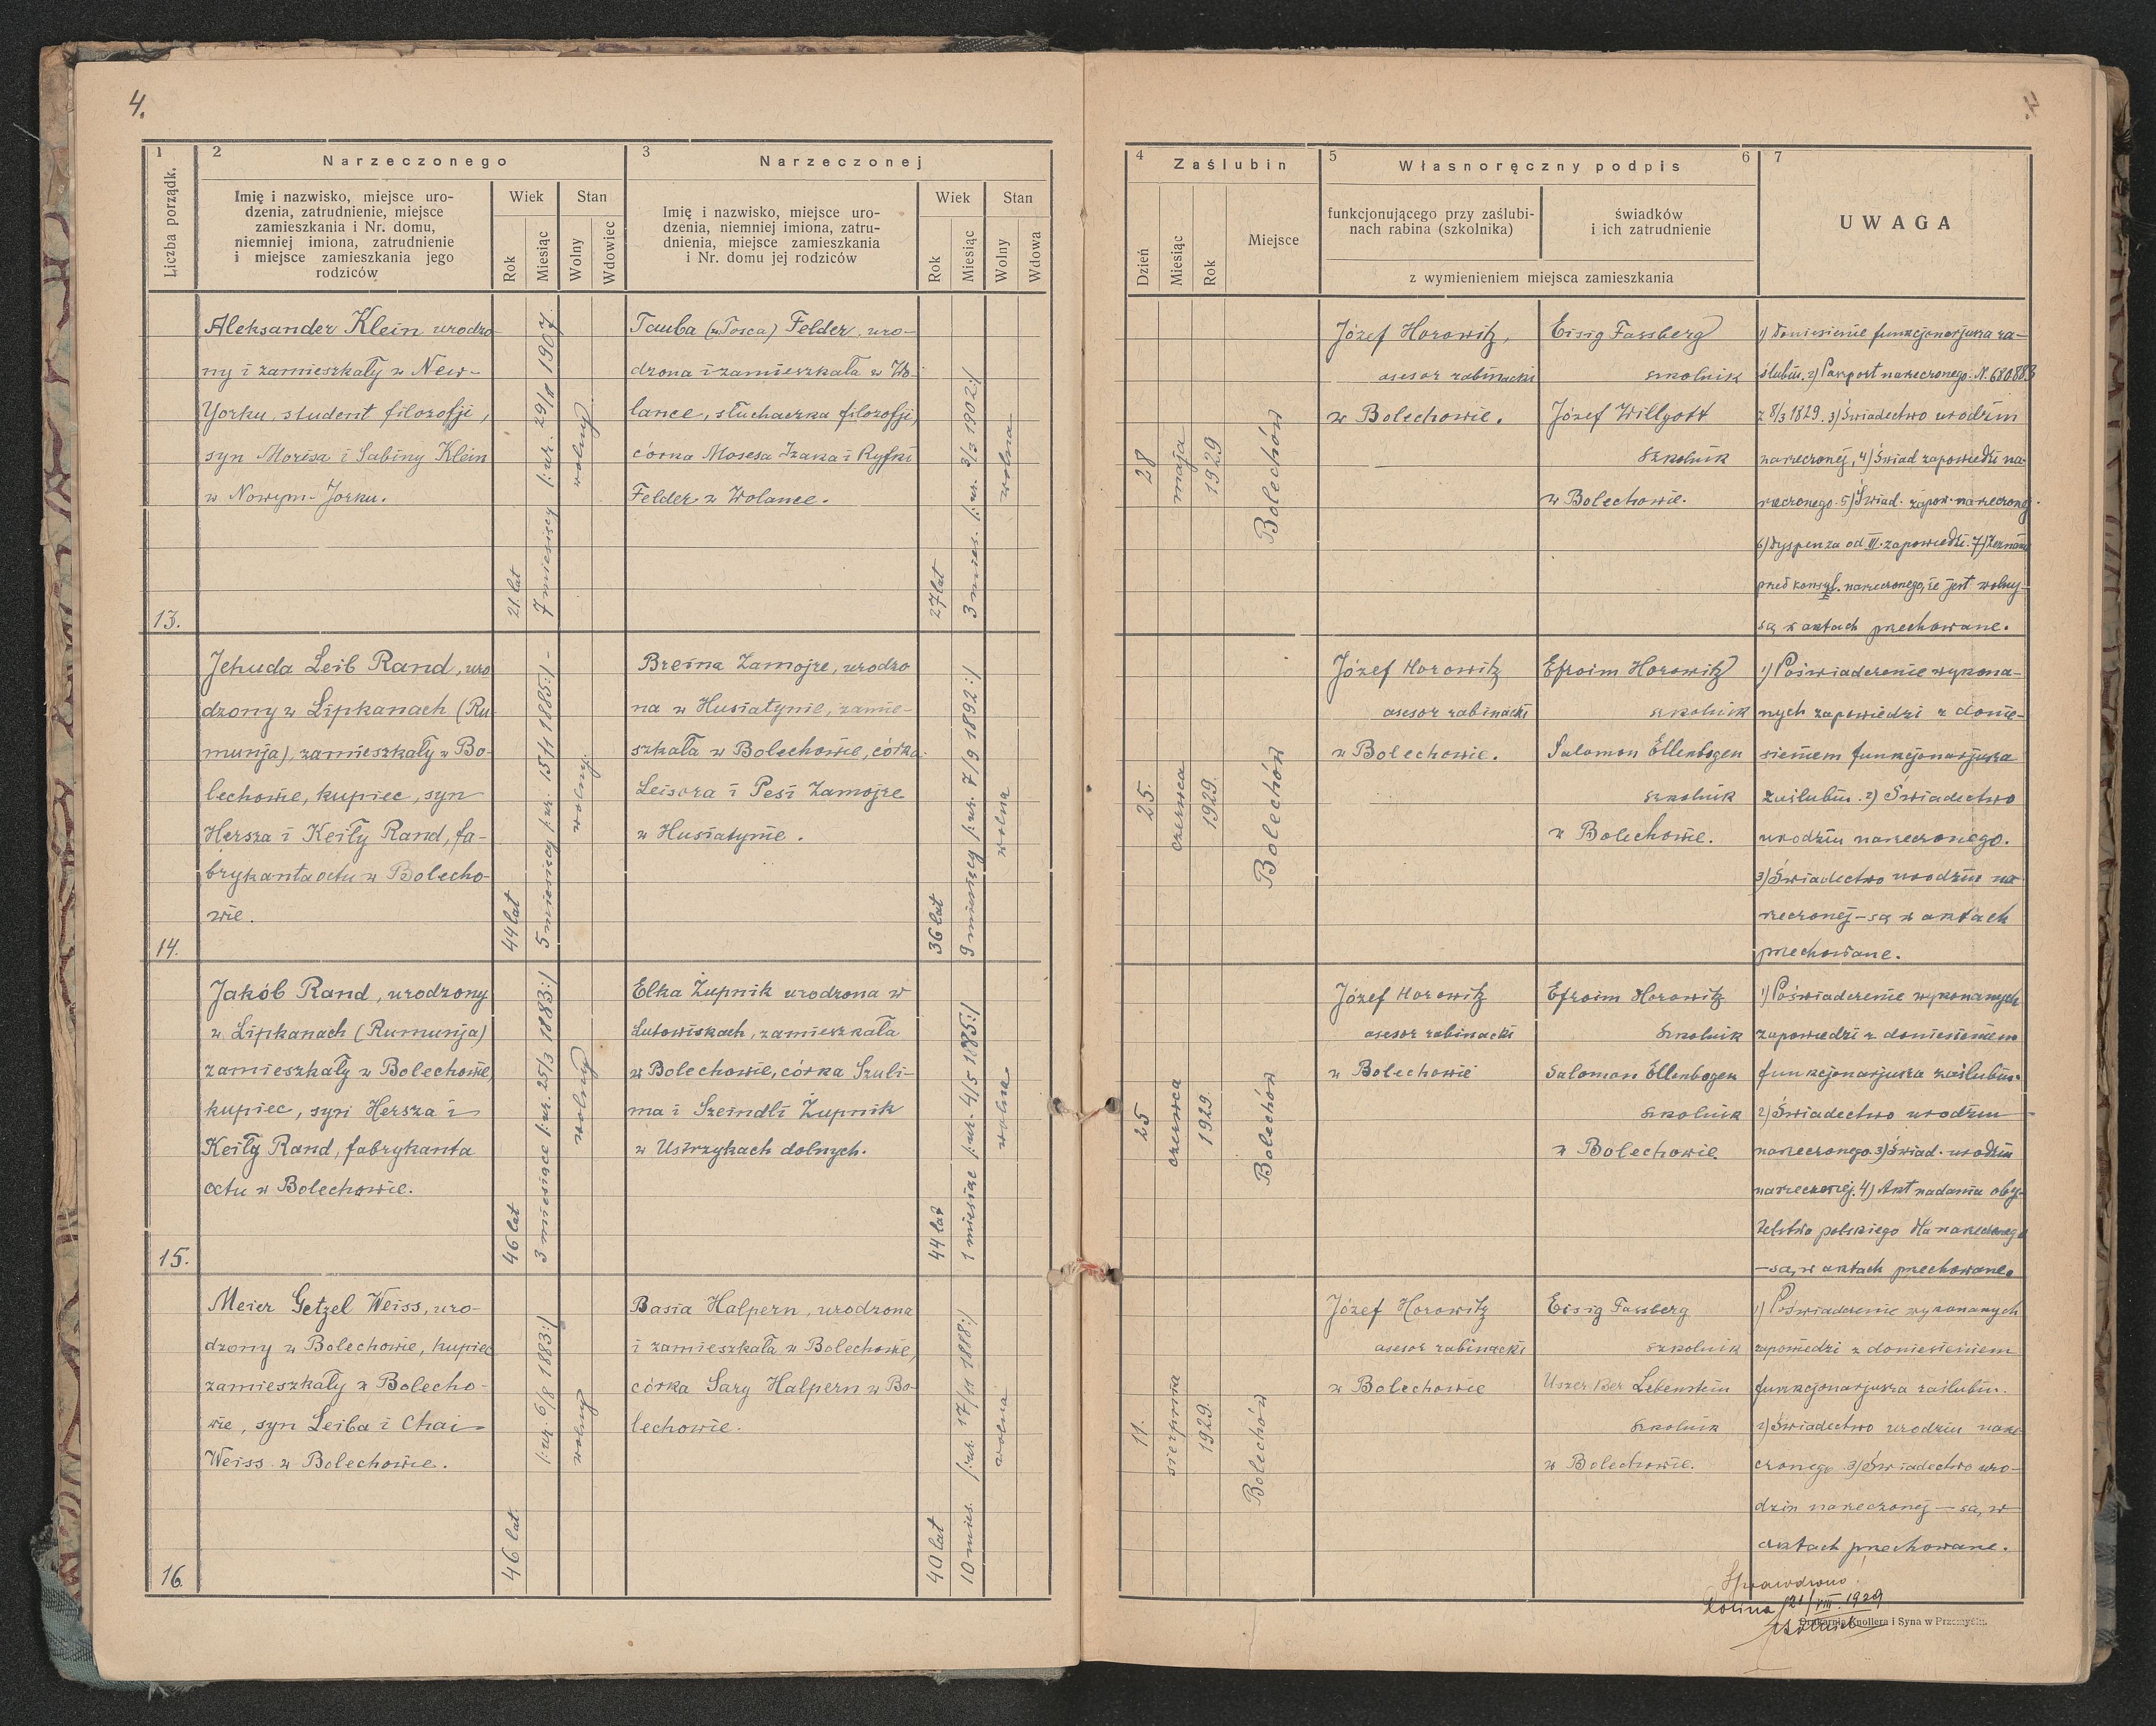 4.
1
2
Narzeczonego
3
Narzeczonej
Liczba porządk.
Imię i nazwisko, miejsce uro-
dzenia, zatrudnienie, miejsce
zamieszkania i Nr. domu,
niemniej imiona, zatrudnienie
i miejsce zamieszkania jego
rodziców
Wiek
Stan
Rok
Miesiąc
Wolny
Wdowiec
Imię i nazwisko, miejsce uro-
dzenia, niemniej imiona, zatru-
dnienia, miejsce zamieszkania
i Nr. domu jej rodziców
Wiek
Stan
Rok
Miesiąc
Wolny
Wdowa
4
Zaślubin
5
Własnoręczny podpis
6
7
Dzień
Miesiąc
Rok
Miejsce
funkcjonującego przy zaślubi-
nach rabina (szkolnika)
świadków
i ich zatrudnienie
z wymienieniem miejsca zamieszkania
UWAGA
13.
Aleksander Klein urodzo-
ny i zamieszkały w New-
Yorku, student filozofji,
syn Morisa i Sabiny Klein
w Nowym-Jorku.
21 lat
7 miesięcy /:ur. 29/8 1907.
wolny
Tauba (Tosca) Felder, uro-
dzona i zamieszkała w Wo-
lance, słuchaczka filozofji,
córka Mosesa Izaka i Ryfki
Felder w Wolance.
27 lat
3 mies. /:ur. 3/3 1902:/
wolna
28
maja
1929
Bolechów
Józef Horowitz,
asesor rabinacki
w Bolechowie.
Eisig Fassberg
szkolnik
Józef Willgott
szkolnik
w Bolechowie.
1) Doniesienie funkcjonarjusza za-
ślubin. 2) Paszport narzeczonego. N. 680883
z 8/3 1829. 3) Świadectwo urodzin
narzeczonej, 4) Świad zapowiedzi na-
rzeczonego. 5) Świad. zapow. narzeczonej.
6) Dyspenza od III. zapowiedzi. 7) Zeznanie
przed konsul. narzeczonego, że jest wolny-
są w aktach przechowane.
14.
Jehuda Leib Rand, uro
dzony w Lipkanach (Ru-
munja), zamieszkały w Bo-
lechowie, kupiec, syn
Hersza i Keily Rand, fa-
brykanta octu w Bolecho-
wie.
44 lat
5 miesięcy /:ur. 15/1 1885:/ -
wolny
Breina Zamojre, urodzo
na w Husiatynie, zamie-
szkała w Bolechowie, córka
Leisora i Pesi Zamojre
w Husiatynie.
36 lat
9 miesięcy /:ur. 7/9 1892:/
wolna
25.
czerwca
1929.
Bolechów
Józef Horowitz
asesor rabinacki
w Bolechowie.
Efroim Horowitz
szkolnik
Salomon Ellenbogen
szkolnik
w Bolechowie.
1) Poświadczenie wykona-
nych zapowiedzi z donie-
sieniem funkcjonarjusza
zaślubin. 2) Świadectwo
urodzin narzeczonego.
3) Świadectwo urodzin na
rzeczonej - są w aktach
przechowane.
15.
Jakób Rand, urodzony
w Lipkanach (Rumunja)
zamieszkały w Bolechowie,
kupiec, syn Hersza i
Keily Rand, fabrykanta
octu w Bolechowie.
46 lat
3 miesiące /:ur. 25/3 1883:/
wolny
Elka Żupnik urodzona w
Lutowiskach, zamieszkała
w Bolechowie, córka Szuli-
ma i Szeindli Żupnik
w Ustrzykach dolnych.
44 lat
1 miesiąc /:ur. 4/5 1885:/
wolna
25
czerwca
1929.
Bolechów
Józef Horowitz
asesor rabinacki
w Bolechowie
Efroim Horowitz
szkolnik
Salomon Ellenbogen
szkolnik
w Bolechowie.
1) Poświadczenie wykonanych
zapowiedzi z doniesieniem
funkcjonarjusza zaślubin.
2) Świadectwo urodzin
narzeczonego. 3) Świad. urodzin
narzeczonej. 4) Akt nadania oby-
telstwa polskiego dla narzeczonego
- są w aktach przechowane.
16.
Meier Getzel Weiss, uro-
dzony w Bolechowie, kupiec
zamieszkały w Bolecho-
wie, syn Leiba i Chai
Weiss w Bolechowie.
46 lat
/:ur. 6/8 1883:/
wolny
Basia Halpern, urodzona
i zamieszkała w Bolechowie,
córka Sary Halpern w Bo-
lechowie.
40 lat
10 mies. /:ur. 17/11 1888:/
wolna
11.
sierpnia
1929.
Bolechów
Józef Horowitz
asesor rabinacki
w Bolechowie
Eisig Fassberg
szkolnik
Uszer Ber Lebenstein
szkolnik
w Bolechowie.
1) Poświadczenie wykonanych
zapowiedzi z doniesieniem
funkcjonarjusza zaślubin.
2) Świadectwo urodzin narze-
czonego 3) Świadectwo uro-
dzin narzeczonej - są w
aktach przechowane.
Sprawdzono
Dolina 21/VIII. 1929
Drukarnia Knollera i Syna w Przemyślu.